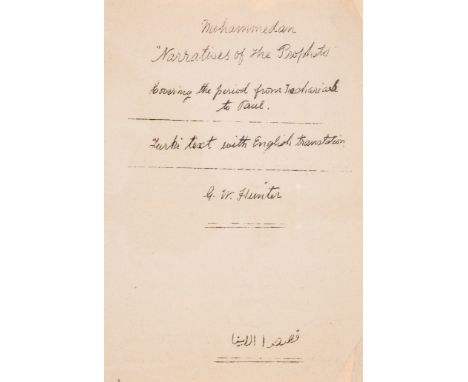 Mohammedan
"Narratives of the Prophets"
Covering the period from Zachariah
to Paul.
Turki text with English translation
G. W. Hunter
قصص الانبيا